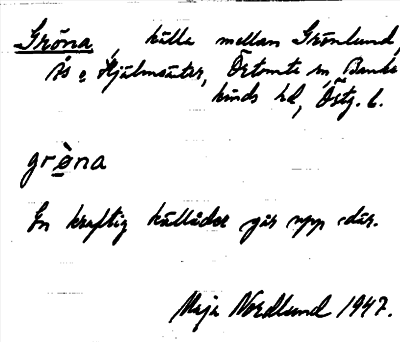 Gröna, källa mellan Grönlund,
Ås o Hjälmsäter, Örtomta sn, Banke
kinds hd, Östg. l.
grèna
En kraftig källåder går upp där.
Maja Nordlund 1947.